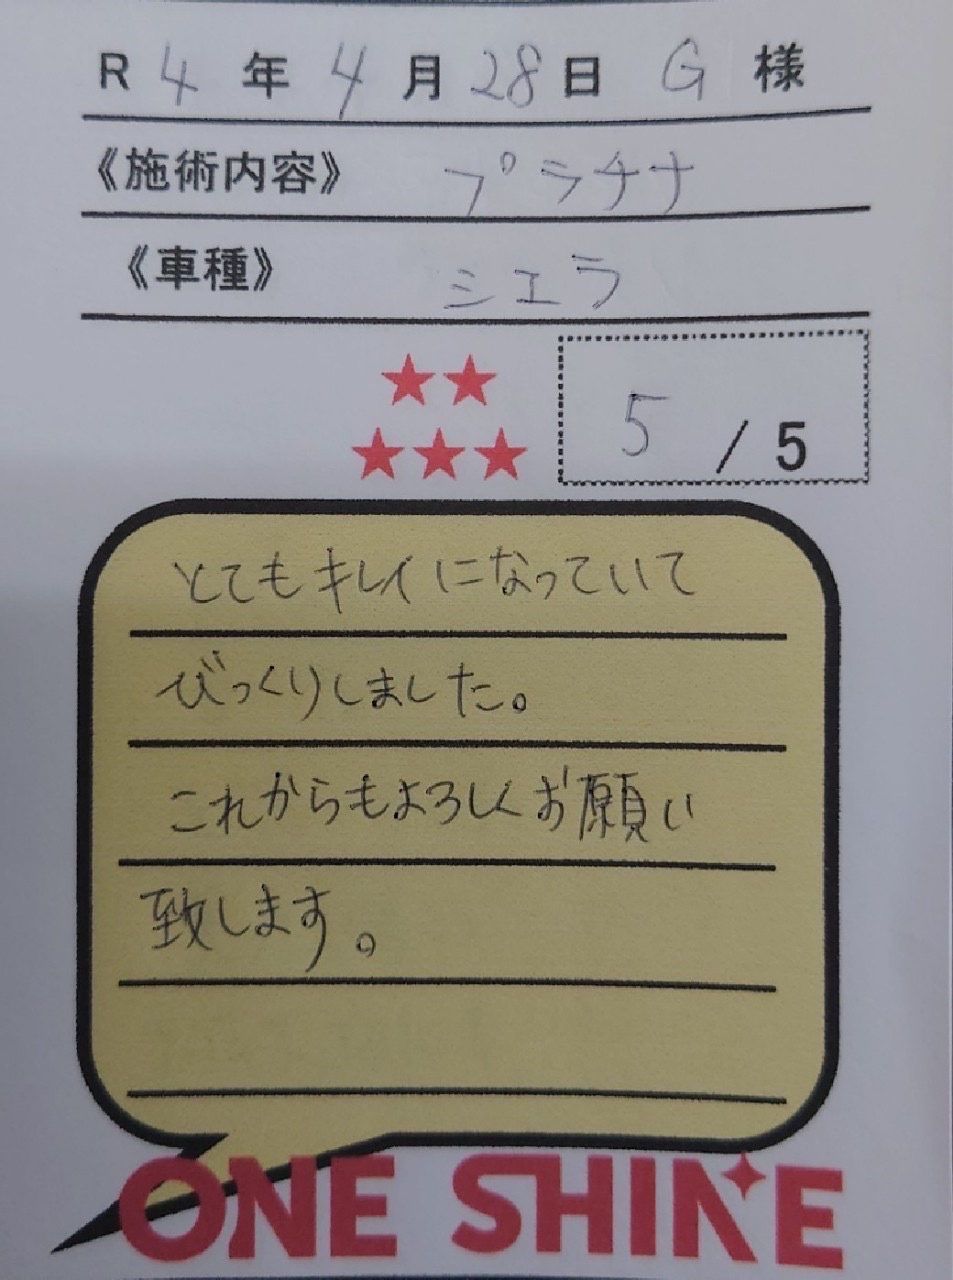 R 4 年 4 月 28 日 G 様
《施術内容》 プラチナ
《車種》 シエラ
★★
★★★
5 / 5
とてもキレイになっていて
びっくりしました。
これからもよろしくお願い
致します。
ONE SHINE